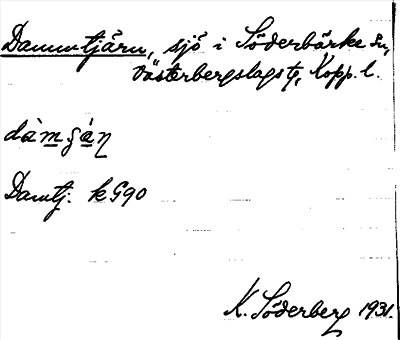 Dammtjärn, sjö i Söderbärke sn,
Västerbergslags tg, Kopp. l.
dàmȿáṇ
Damtj. k G90
K. Söderberg 1931.